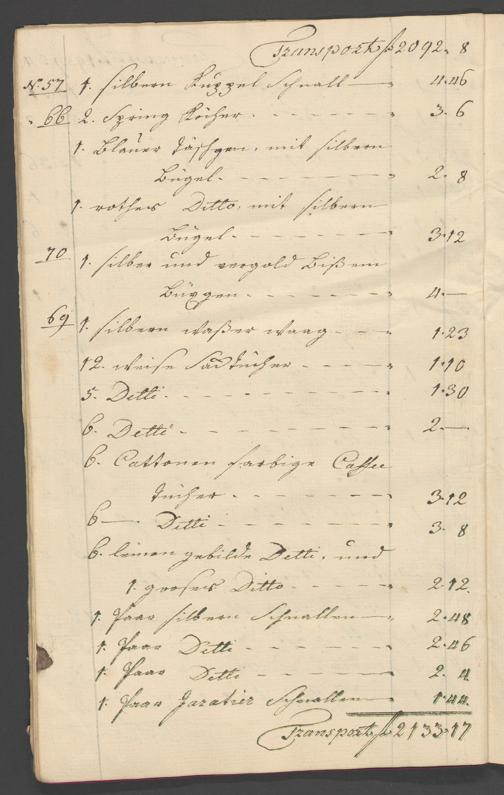 Transport f 2092. 8
N: 57 1. silbern Kuppel Schnall — " 4. 46
" 66 2. Spring Köcher. - - - - " 3. 6
1. Blauer Täschgen, mit silbern
Bügel. - - - - - " 2. 8
1. rothes Ditto, mit silbern
Bügel. - - - - - " 3. 12
70 1. silber und vergold Bisem
Büxgen. - - - - " 4. —
69 1. silbern waßer waag - - - " 1. 23
12. weise Sacktücher - - - - " 1. 10
5. Detti. - - - - - - " 1. 30
6. Detti - - - - - - " 2. —
6. Cattonen farbige Caffee
tücher. - - - - - " 3. 12
6 — Detti - - - - - " 3. 8
6. leinen gebilde Detti, und
1. groses Ditto - - - - " 2. 12.
1. Paar silbern Schnallen — " 2. 48
1. Paar Detti - - - - " 2. 46
1. Paar Detti - - - - " 2. 4
1. Paar Schnallen — " 1. 44.
Transport f 2133. 17